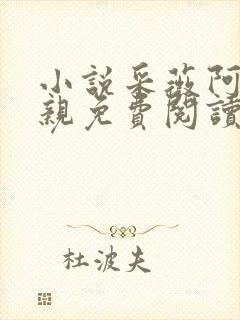 小說采薇阿
親免費閱讀
杜波夫